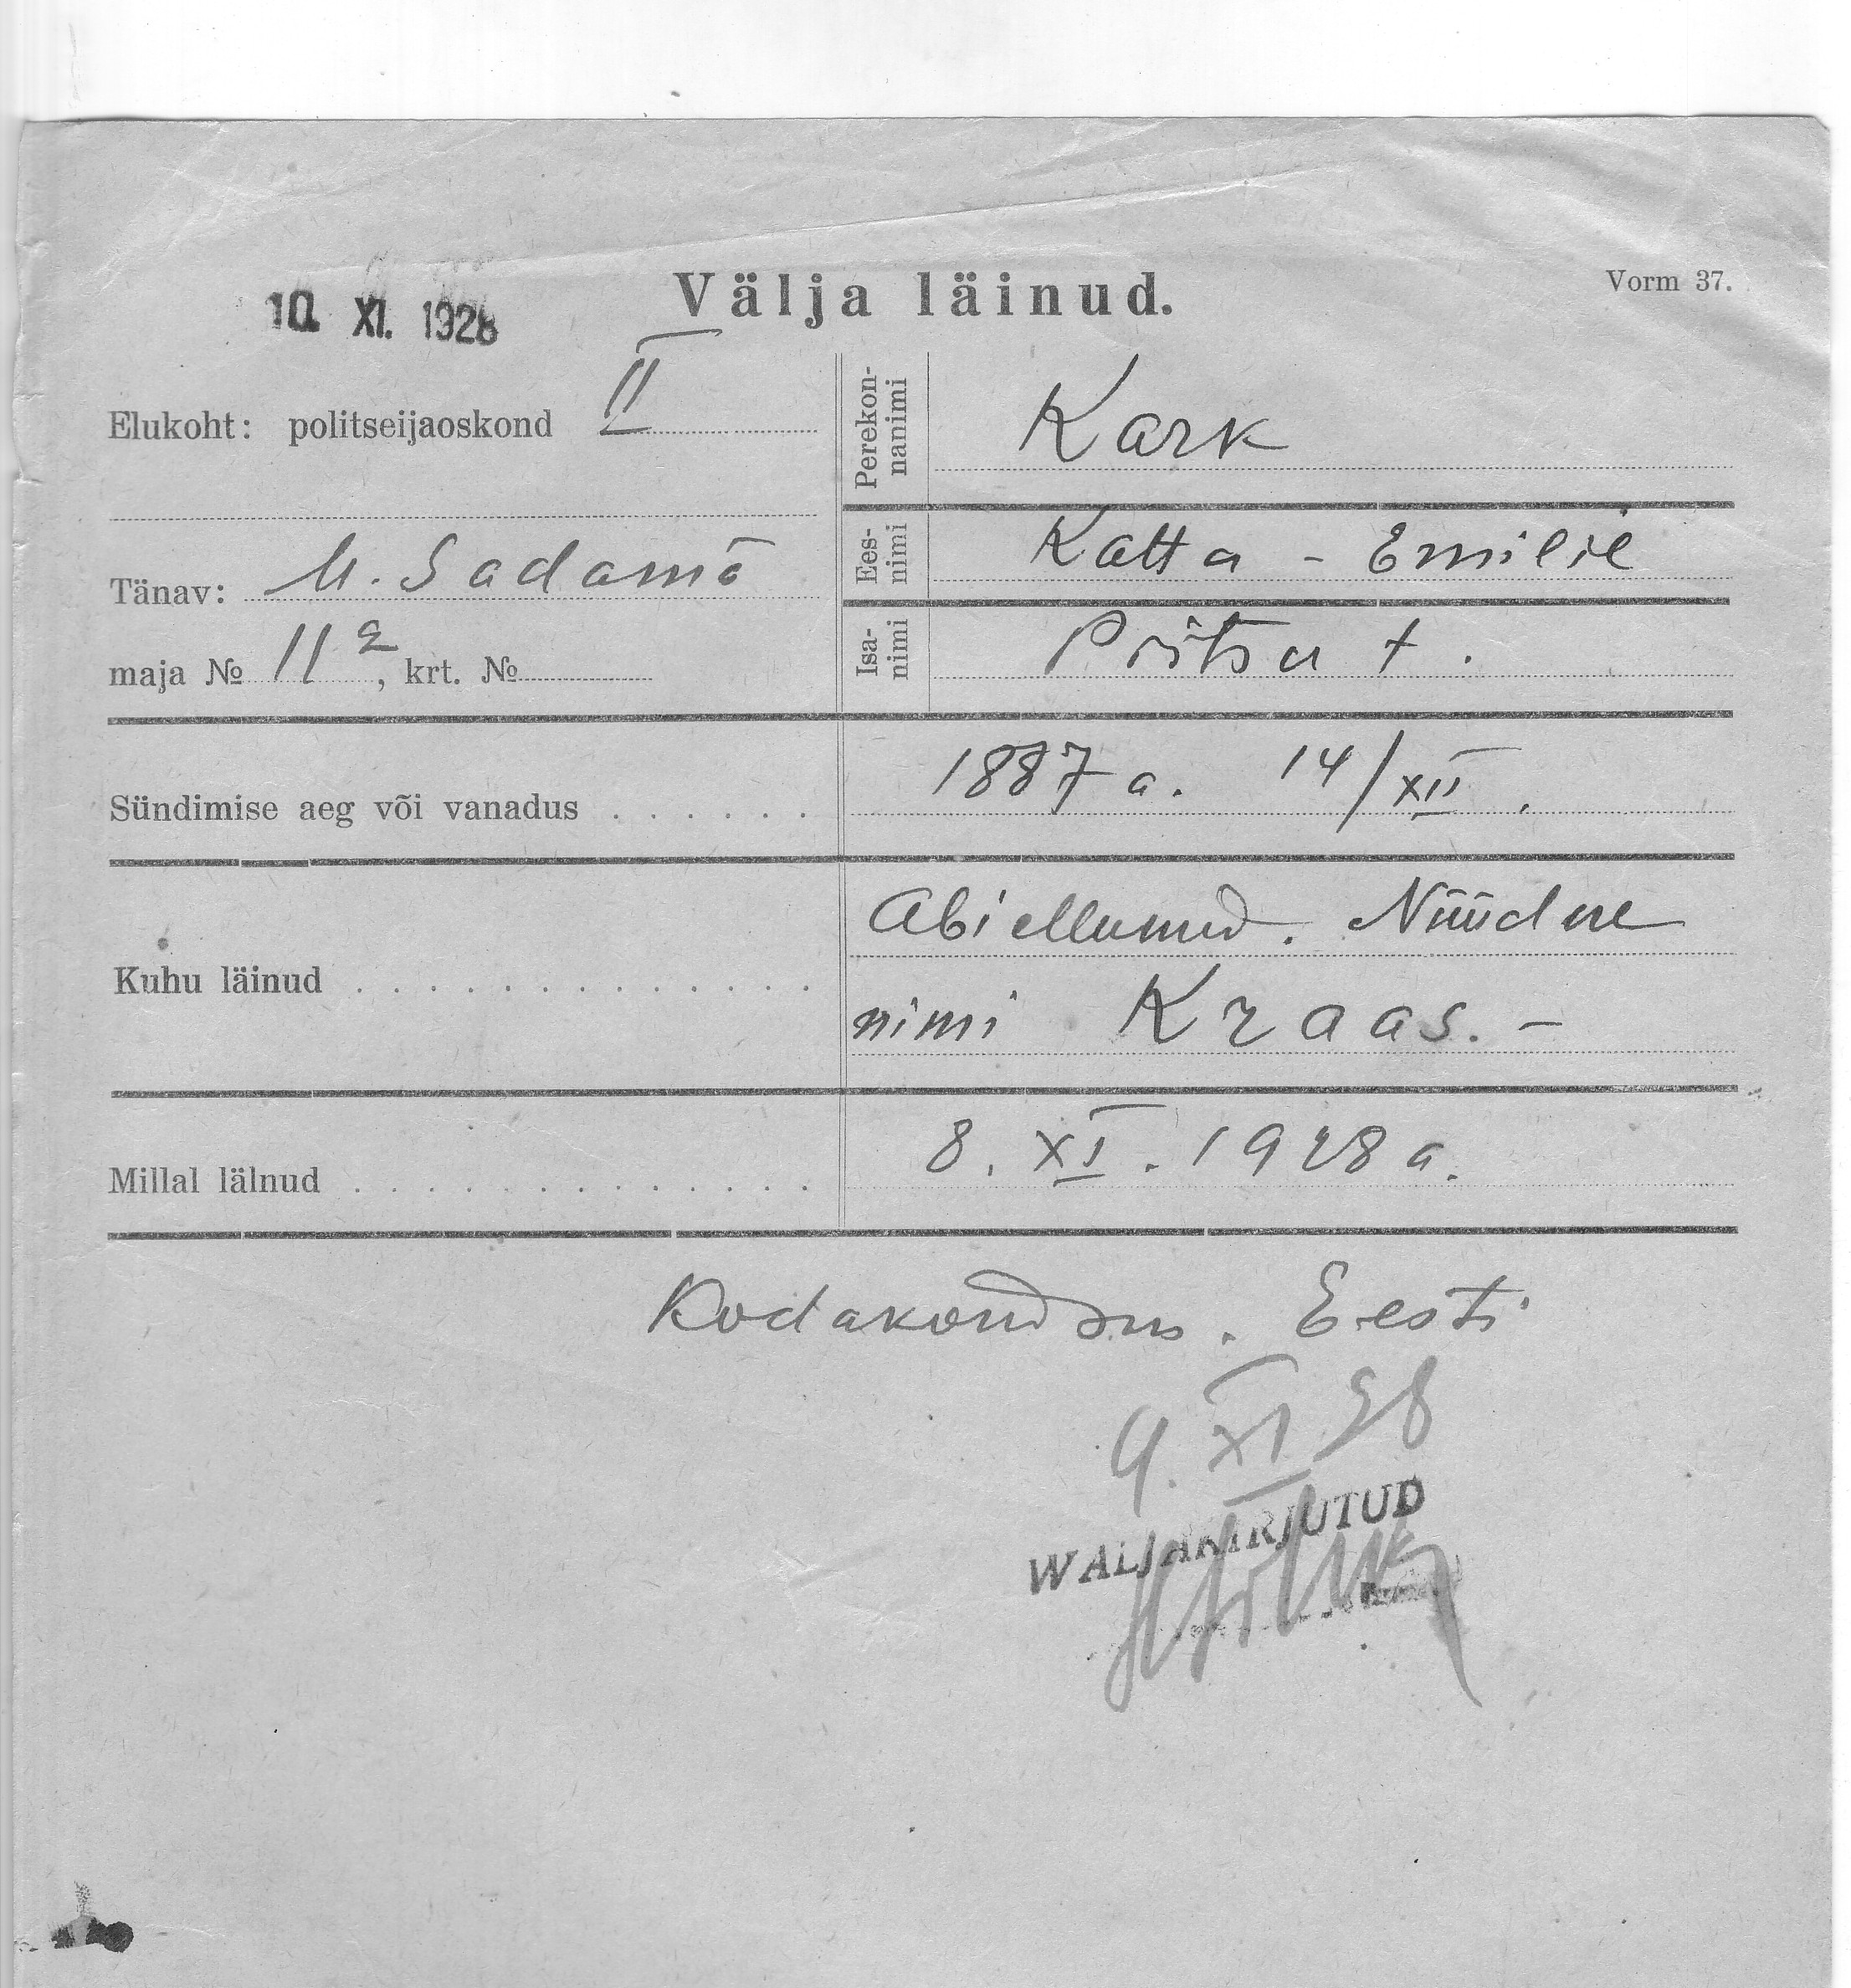 10. XI. 1928
Välja läinud.
Vorm 37.
Elukoht: politseijaoskond II
Tänav: U. Sadama
maja № 11a, krt. №
Perekon-
nanimi
Kark
Ees-
nimi
Katta - Emilie
Isa-
nimi
Priitsu t.
Sündimise aeg või vanadus
1887 a. 14/XII.
Kuhu läinud
Abiellunud. Nüüdne
nimi Kraas. -
Millal läinud
8. XI. 1928 a.
Kodakondsus. Eesti
9. XI 28
WALJAKIRJUTUD